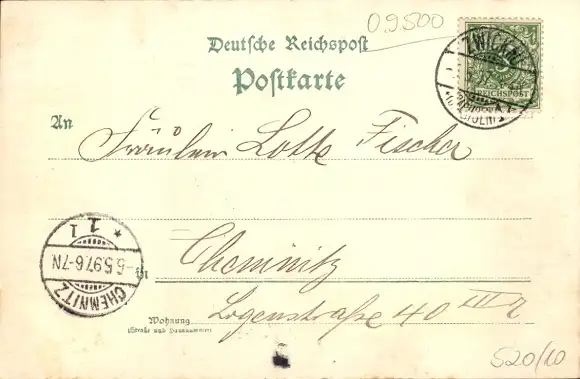 09500
Deutsche Reichspost
Postkarte
ZWICKAU
REICHSPOST
An
Fräulein Lotte Fischer
1 1
-6.5.97.6-7N.
CHEMNITZ
in
Chemnitz
Wohnung
(Straße und Hausnummer)
Logenstraße 40 III r
520/10